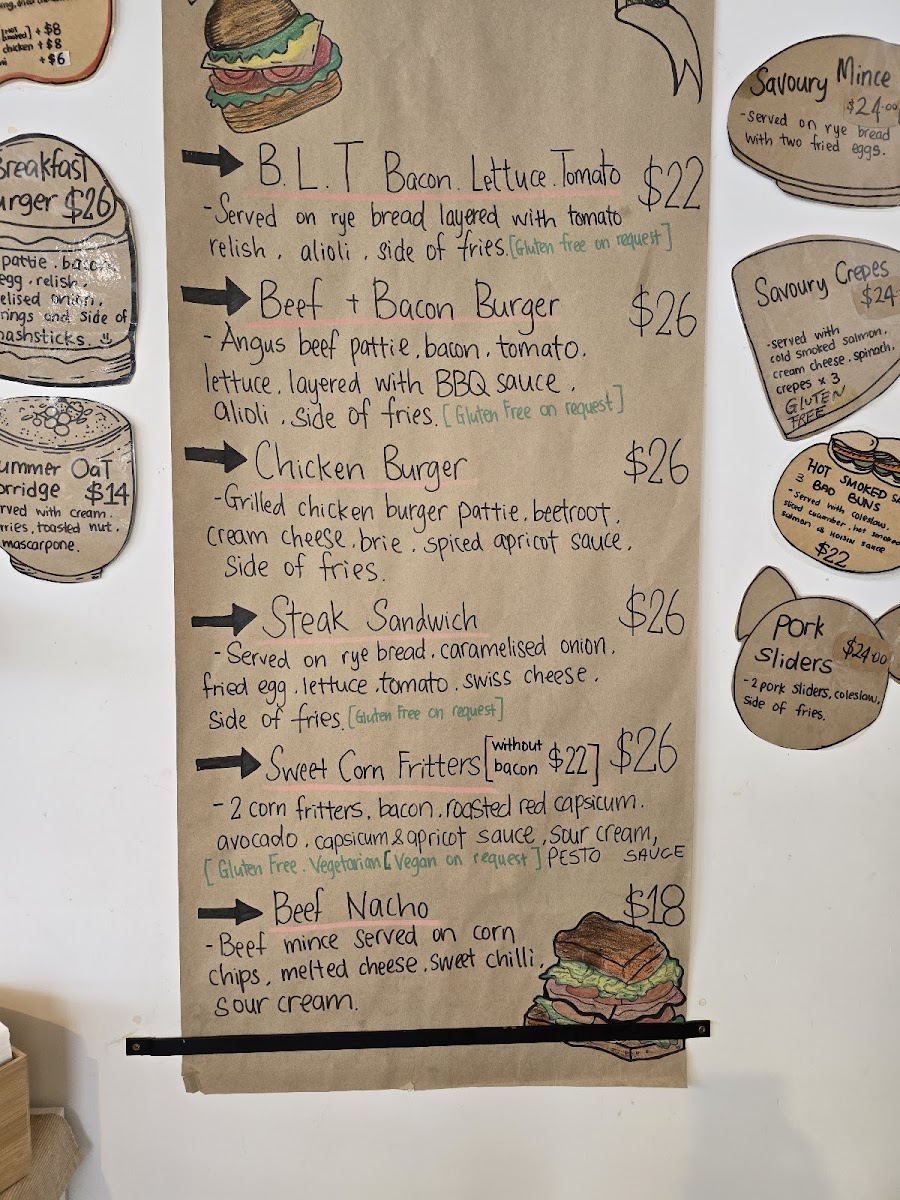 +$8
chicken +$8
+$6
Breakfast
urger $26
pattie . bacon
egg . relish .
elised onion .
rings and side of
hashsticks.
ummer Oat
orridge $14
rved with cream .
rries, toasted nut .
mascarpone.
B.L.T Bacon. Lettuce. Tomato $22
- Served on rye bread layered with tomato
relish , alioli , side of fries. [Gluten free on request]
Beef + Bacon Burger $26
- Angus beef pattie, bacon, tomato,
lettuce, layered with BBQ sauce ,
alioli , side of fries. [Gluten Free on request]
Chicken Burger $26
- Grilled chicken burger pattie, beetroot,
cream cheese, brie , spiced apricot sauce ,
side of fries.
Steak Sandwich $26
- Served on rye bread, caramelised onion,
fried egg, lettuce, tomato, swiss cheese ,
side of fries. [Gluten Free on request]
Sweet Corn Fritters [without bacon $22] $26
- 2 corn fritters, bacon, roasted red capsicum,
avocado , capsicum & apricot sauce , sour cream,
[Gluten Free . Vegetarian [Vegan on request] PESTO SAUCE
Beef Nacho $18
- Beef mince served on corn
chips, melted cheese, sweet chilli,
sour cream.
Savoury Mince
$24.00
- served on rye bread
with two fried eggs.
Savoury Crepes
$24
- served with
cold smoked salmon,
cream cheese, spinach,
crepes x 3
GLUTEN
FREE
HOT SMOKED SA
3 BAO BUNS
- Served with coleslaw,
sliced cucumber, hot smoked
salmon & hoisin sauce
$22
Pork
Sliders $24.00
- 2 pork sliders, coleslaw,
side of fries.